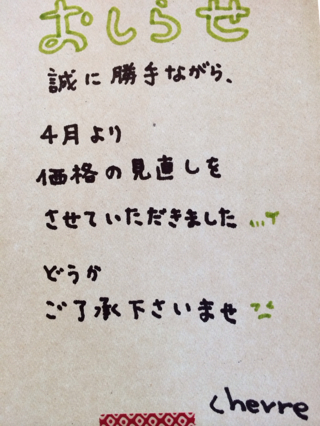 おしらせ
誠に勝手ながら、
4月より
価格の見直しを
させていただきました
どうか
ご了承下さいませ
chevre